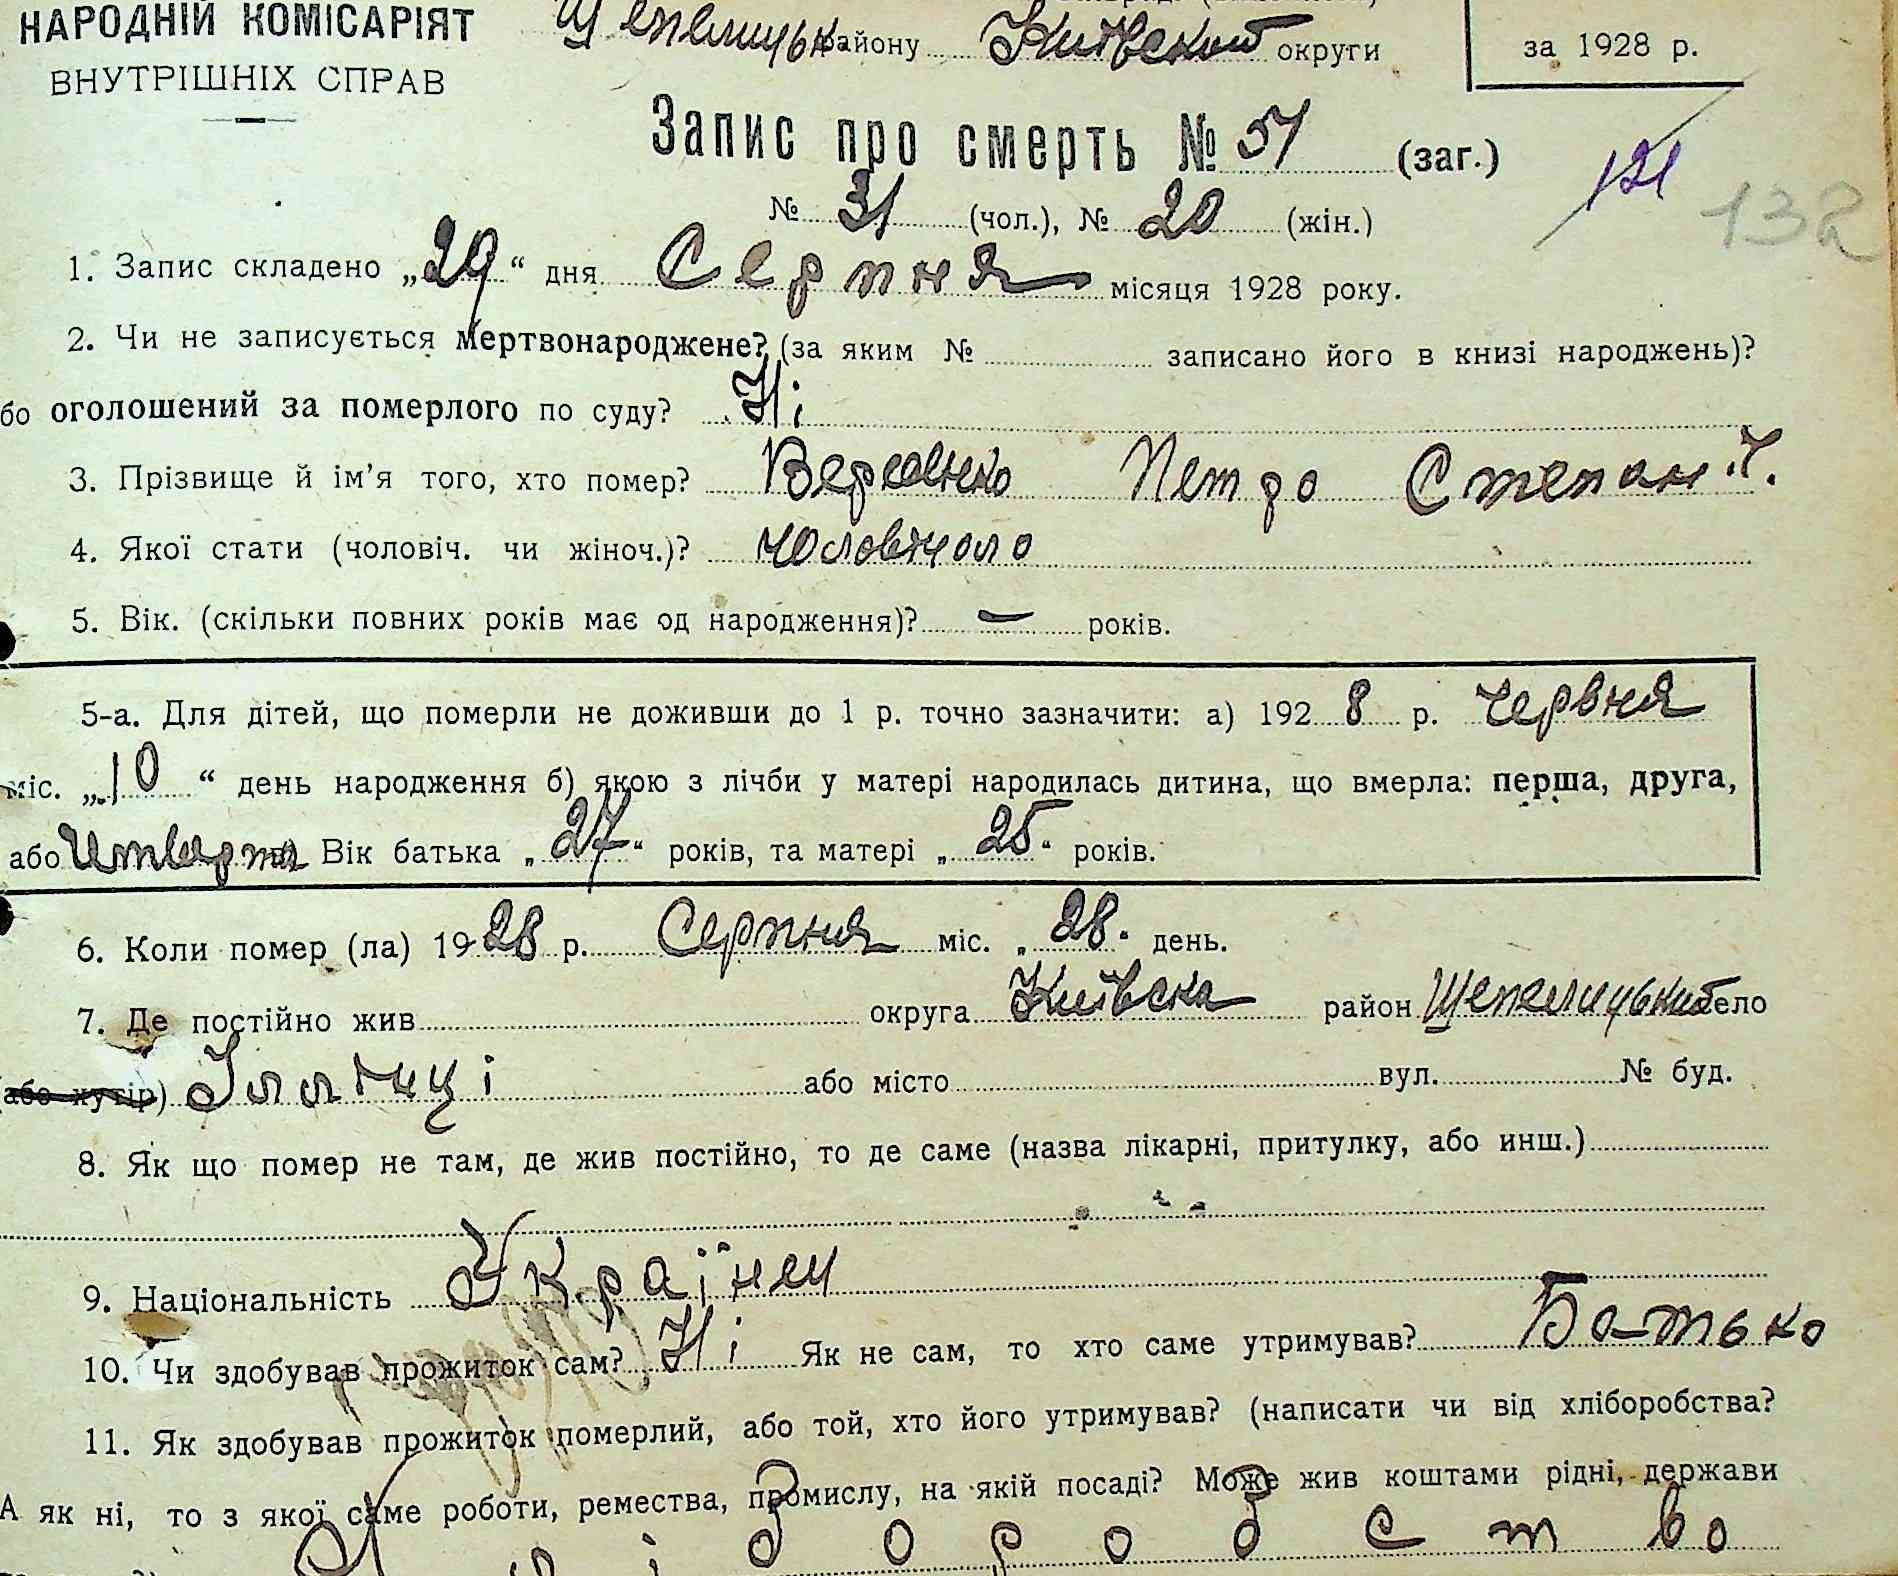 НАРОДНІЙ КОМІСАРІЯТ
ВНУТРІШНІХ СПРАВ
Шепелицьк району Київської округи
за 1928 р.
Запис про смерть № 51 (заг.)
121
132
№ 31 (чол.), № 20 (жін.)
1. Запис складено „29“ дня Серпня місяця 1928 року.
2. Чи не записується мертвонароджене? (за яким № записано його в книзі народжень)?
бо оголошений за померлого по суду? Ні
3. Прізвище й ім'я того, хто помер? Петро Степан.
4. Якої стати (чоловіч. чи жіноч.)? чоловічого
5. Вік. (скільки повних років має од народження)? — років.
5-а. Для дітей, що померли не доживши до 1 р. точно зазначити: а) 1928 р. червня
міс. „10“ день народження б) якою з лічби у матері народилась дитина, що вмерла: перша, друга,
або четверта Вік батька „27“ років, та матері „25“ років.
6. Коли помер (ла) 1928 р. Серпня міс. „28“ день.
7. Де постійно жив округа Київська район Шепелицький село
(або хутір) Іллінці або місто вул. № буд.
8. Як що помер не там, де жив постійно, то де саме (назва лікарні, притулку, або инш.)
9. Національність Українец
10. Чи здобував прожиток сам? Ні Як не сам, то хто саме утримував? Батько
11. Як здобував прожиток померлий, або той, хто його утримував? (написати чи від хліборобства?
А як ні, то з якої саме роботи, ремества, промислу, на якій посаді? Може жив коштами рідні, держави
Хліборобство